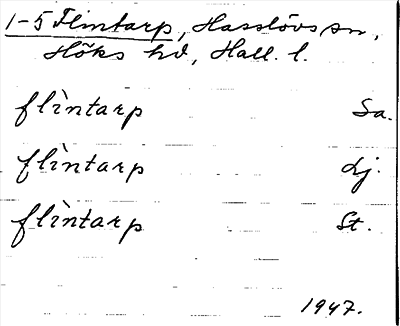 1-5 Flintarp, Hasslövs sn,
Höks hd, Hall. l.
flìntarp Sa.
flìntarp Lj.
flìntarp St.
1947.